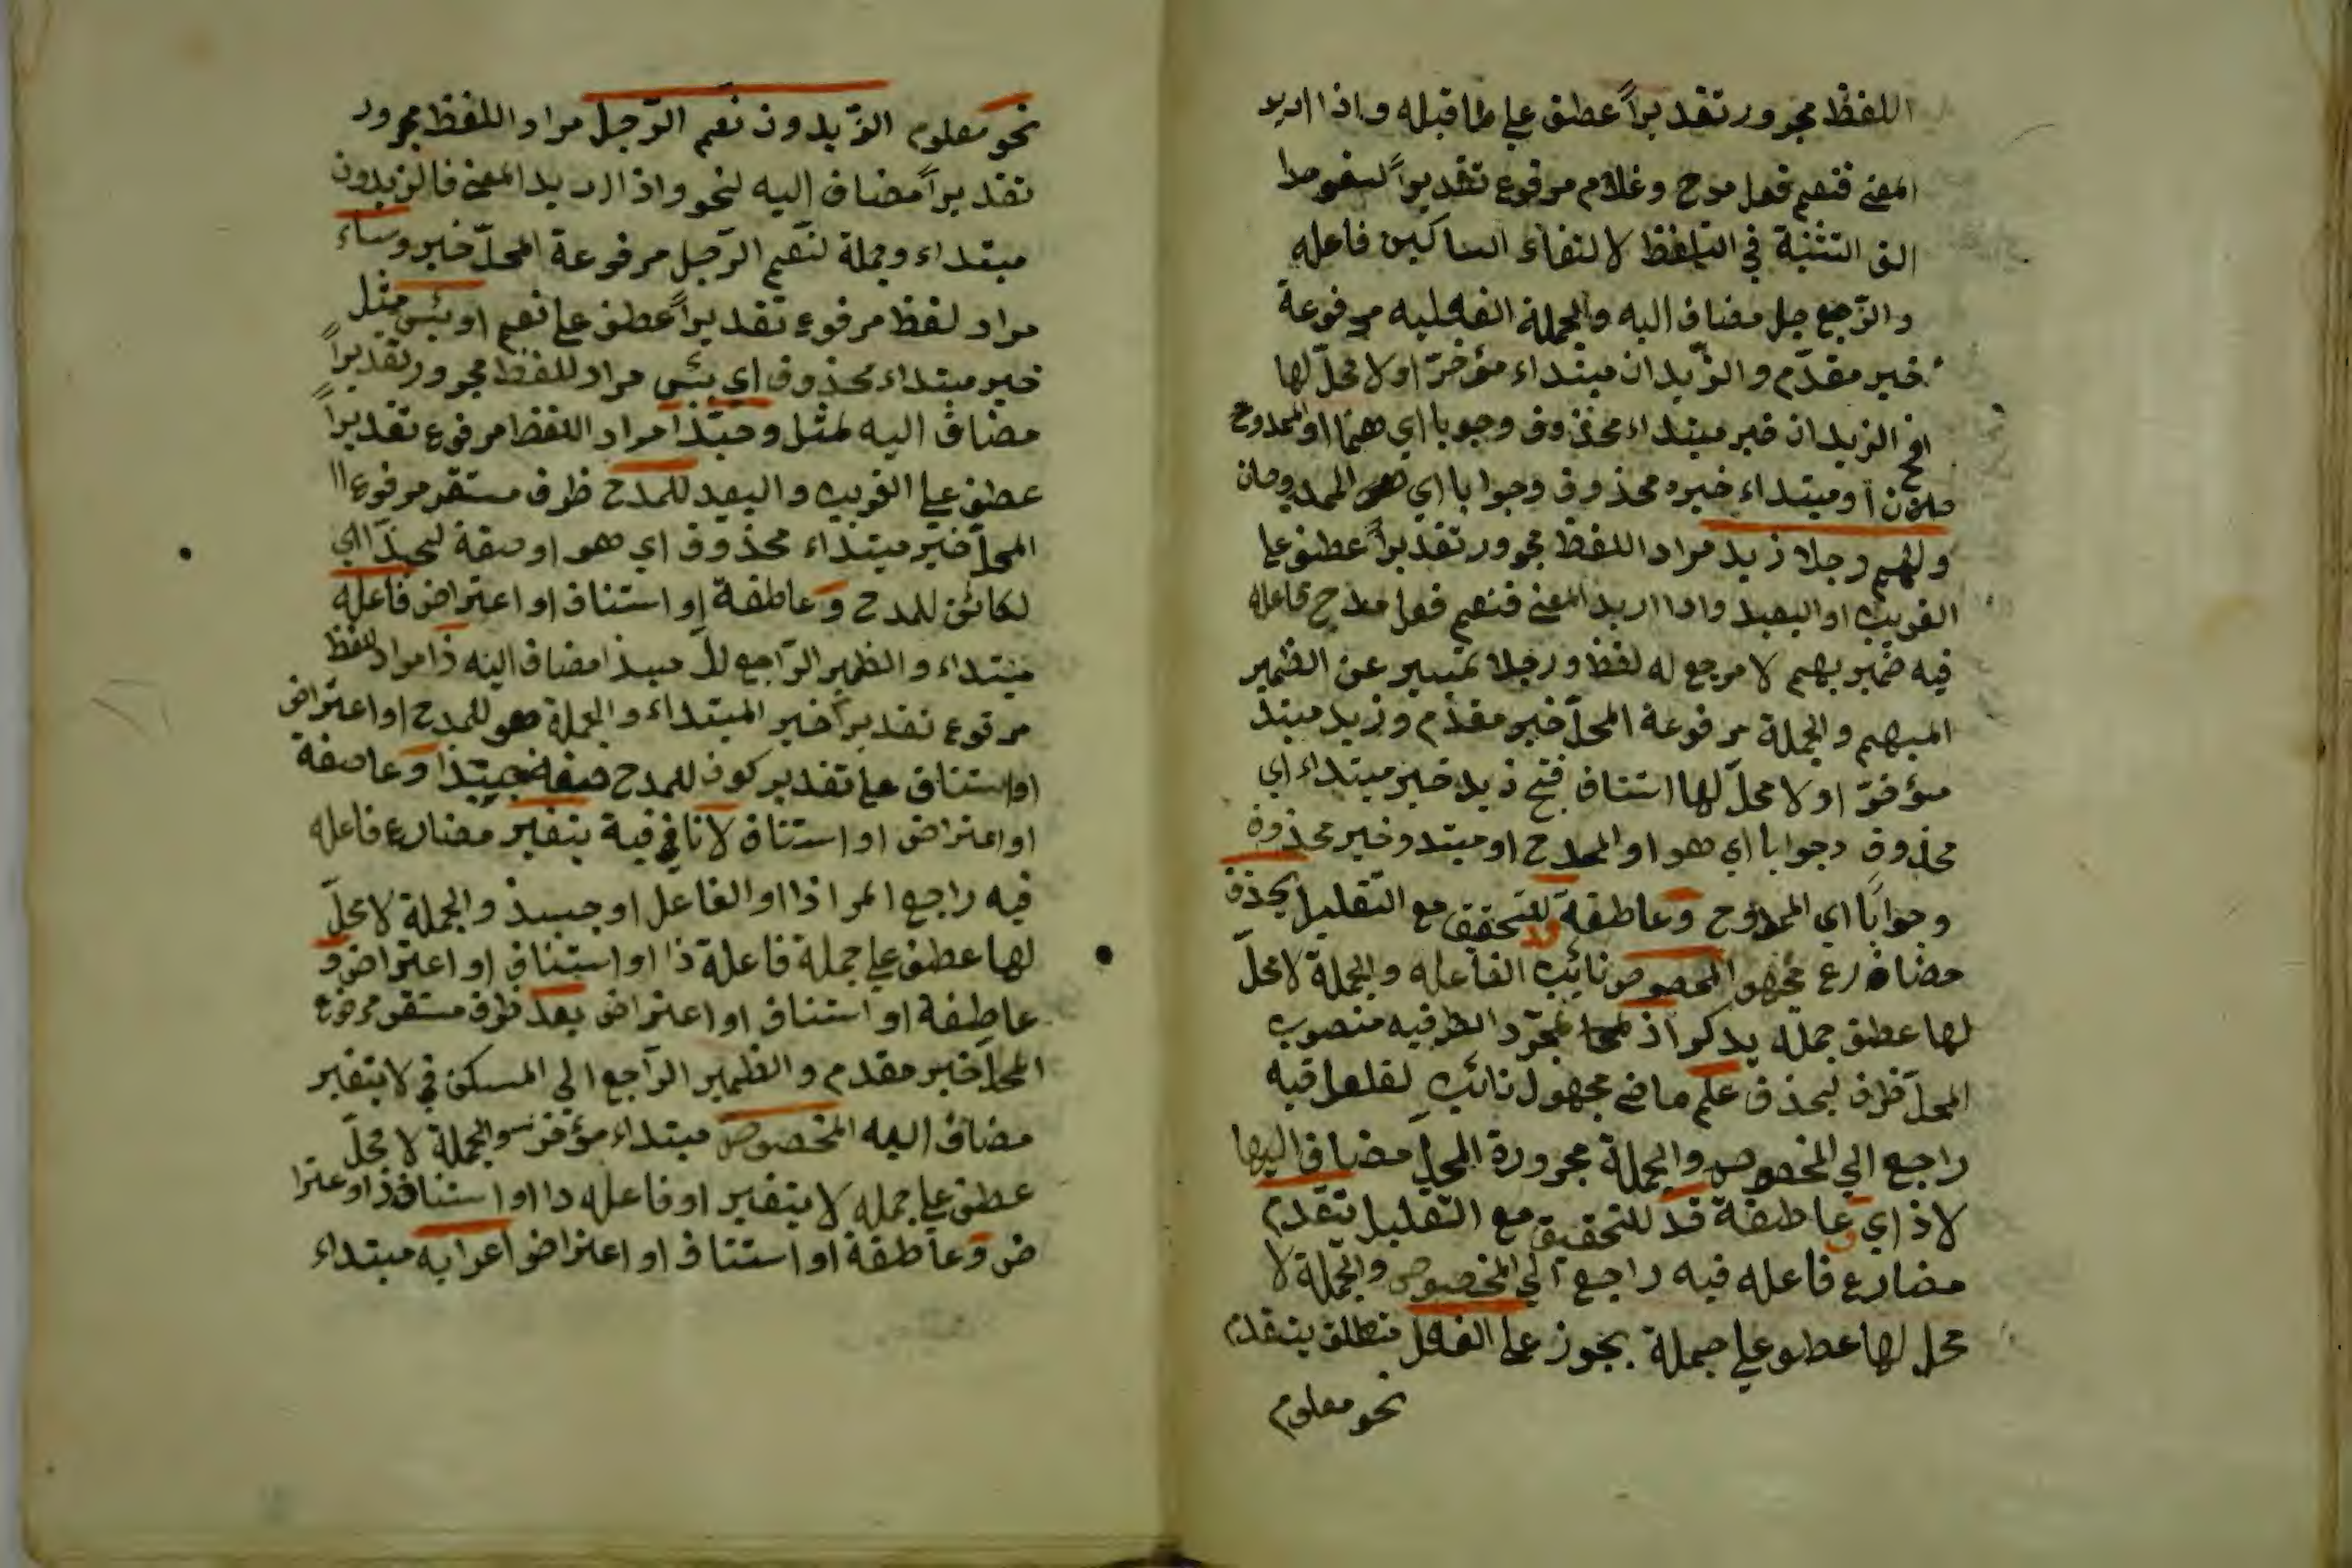 اللفظ مجرور تقديراً عطف على ما قبله واذا اريد
المعنى فنعم فعل مدح وغلام مرفوع تقديراً لسقوط
الف التثنية في التلفظ لالتقاء الساكين فاعله
والرجل مضاف اليه والجملة الفعليه مرفوعة
خبر مقدّم والزّيدان مبتداء مؤخرّ اولا محلّ لها
الزيدان خبر مبتداء محذوف وجوبا اي هما او الممدوح
او مبتداء خبره محذوف وجوابا اي هما الممدوحان
ونعم رجلا زيد مراد اللفظ مجرور تقديراً عطف على
القريب او البعيد واذا اريد المعنى فنعم فعل مدح فاعله
فيه ضمير بهم لا مرجع له لفظ ورجلا تمييز عن الظمير
المبهم والجملة مرفوعة المحلّ خبر مقدّم وزيد مبتد
مؤخرّ اولا محلّ لها استناف زيد خبر مبتداء اي
محذوف وجوابا اي هو او الممدح او مبتد وخبر محذوف
وجوابًا اي الممدوح وعاطفة قد للتحقق مع التّقليل يحذف
مضارع مجهو المخصوص نائب الفاعله والجملة لا محلّ
لها عطف جملة يذكر اذ لمجرّد الظرفيه منصوب
المحلّ ظرف ليحذف علم ماضى مجهول نائب لفلعل فيه
راجع الي المخصوص والجملة مجرورة المحلّ مضاف اليها
لاذ اي وعاطفة قد للتحقيق مع التّقليل يتقدّم
مضارع فاعله فيه راجع الي المخصوص والجملة لا
محل لها عطف على جملة يجوز على الفعل متعلق يتقدّم
نحو معلوم
نحو معلوم الزّيدون نعم الرّجل مراد اللفظ مجرور
تقديراً مضاف اليه لنحو واذا اريد المعنى فالزيدون
مبتداء وجملة لنعم الرّجل مرفوعة المحلّ خبر وساء
مراد لفظ مرفوع تقديراً عطف على نعم او بئس مثل
خبر مبتداء محذوف اي بئس مراد للفظ مجرور تقديراً
مضاف اليه لمثل وحبّذا مراد اللفظ مرفوع تقديراً
عطف على القريب والبعيد للمدح ظرف مستقر مرفوع
المحلّ خبر مبتداء محذوف اي هو او صفة لحبذّا اي
لكائن للمدح و عاطفة او استناف او اعتراض فاعله
مبتداء والظمير الرّاجع مضاف اليه ذا مراد اللفظ
مرفوع تقديراً خبر المبتداء والجملة هو للمدح او اعتراض
او استناف على تقدير كون للمدح صفة حبّذا و عاصفة
او اعتراض او استناف لا نافية يتغير مضارع فاعله
فيه راجع المر اذا او الفاعل او والجملة لا محلّ
لها عطف على جملة فاعلة ذا او استناف او اعتراض و
عاطفة او استناف او اعتراض بعد ظرف مستقر مرفوع
المحلّ خبر مقدم والظمير الرّاجع الي المسكن في لا يتغير
مضاف اليه المخصوص مبتداء مؤخر والجملة لا محلّ
عطف على جمله لا يتغير او فاعله ذا او استناف او اعترا
ض و عاطفة او استناف او اعتراض اعرابه مبتداء